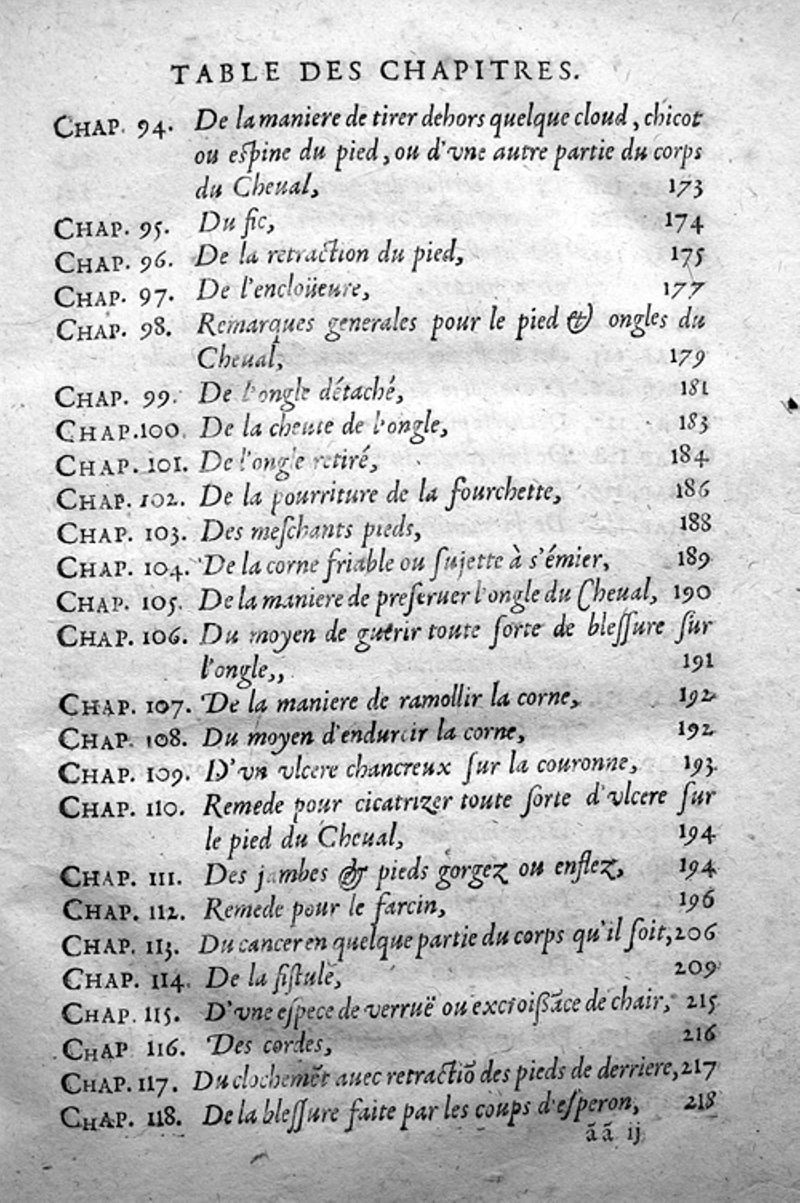 TABLE DES CHAPITRES.
CHAP. 94. De la maniere de tirer dehors quelque cloud, chicot
ou eſpine du pied, ou d'vne autre partie du corps
du Cheual, 173
CHAP. 95. Du fic, 174
CHAP. 96. De la retraction du pied, 175
CHAP. 97. De l'encloüeure, 177
CHAP. 98. Remarques generales pour le pied & ongles du
Cheual, 179
CHAP. 99. De l'ongle détaché, 181
CHAP. 100. De la cheute de l'ongle, 183
CHAP. 101. De l'ongle retiré, 184
CHAP. 102. De la pourriture de la fourchette, 186
CHAP. 103. Des meſchants pieds, 188
CHAP. 104. De la corne friable ou ſujette à s'émier, 189
CHAP. 105. De la maniere de preſeruer l'ongle du Cheual, 190
CHAP. 106. Du moyen de guérir toute ſorte de bleſſure ſur
l'ongle,, 191
CHAP. 107. De la maniere de ramollir la corne, 192
CHAP. 108. Du moyen d'endurcir la corne, 192
CHAP. 109. D'vn vlcere chancreux ſur la couronne, 193
CHAP. 110. Remede pour cicatrizer toute ſorte d'vlcere ſur
le pied du Cheual, 194
CHAP. 111. Des jambes & pieds gorgez ou enflez, 194
CHAP. 112. Remede pour le farcin, 196
CHAP. 113. Du cancer en quelque partie du corps qu'il ſoit, 206
CHAP. 114. De la fiſtule, 209
CHAP. 115. D'vne eſpece de verruë ou excroißãce de chair, 215
CHAP 116. Des cordes, 216
CHAP. 117. Du clochemẽt auec retractiõ des pieds de derriere, 217
CHAP. 118. De la bleſſure faite par les coups d'eſperon, 218
ãã ij